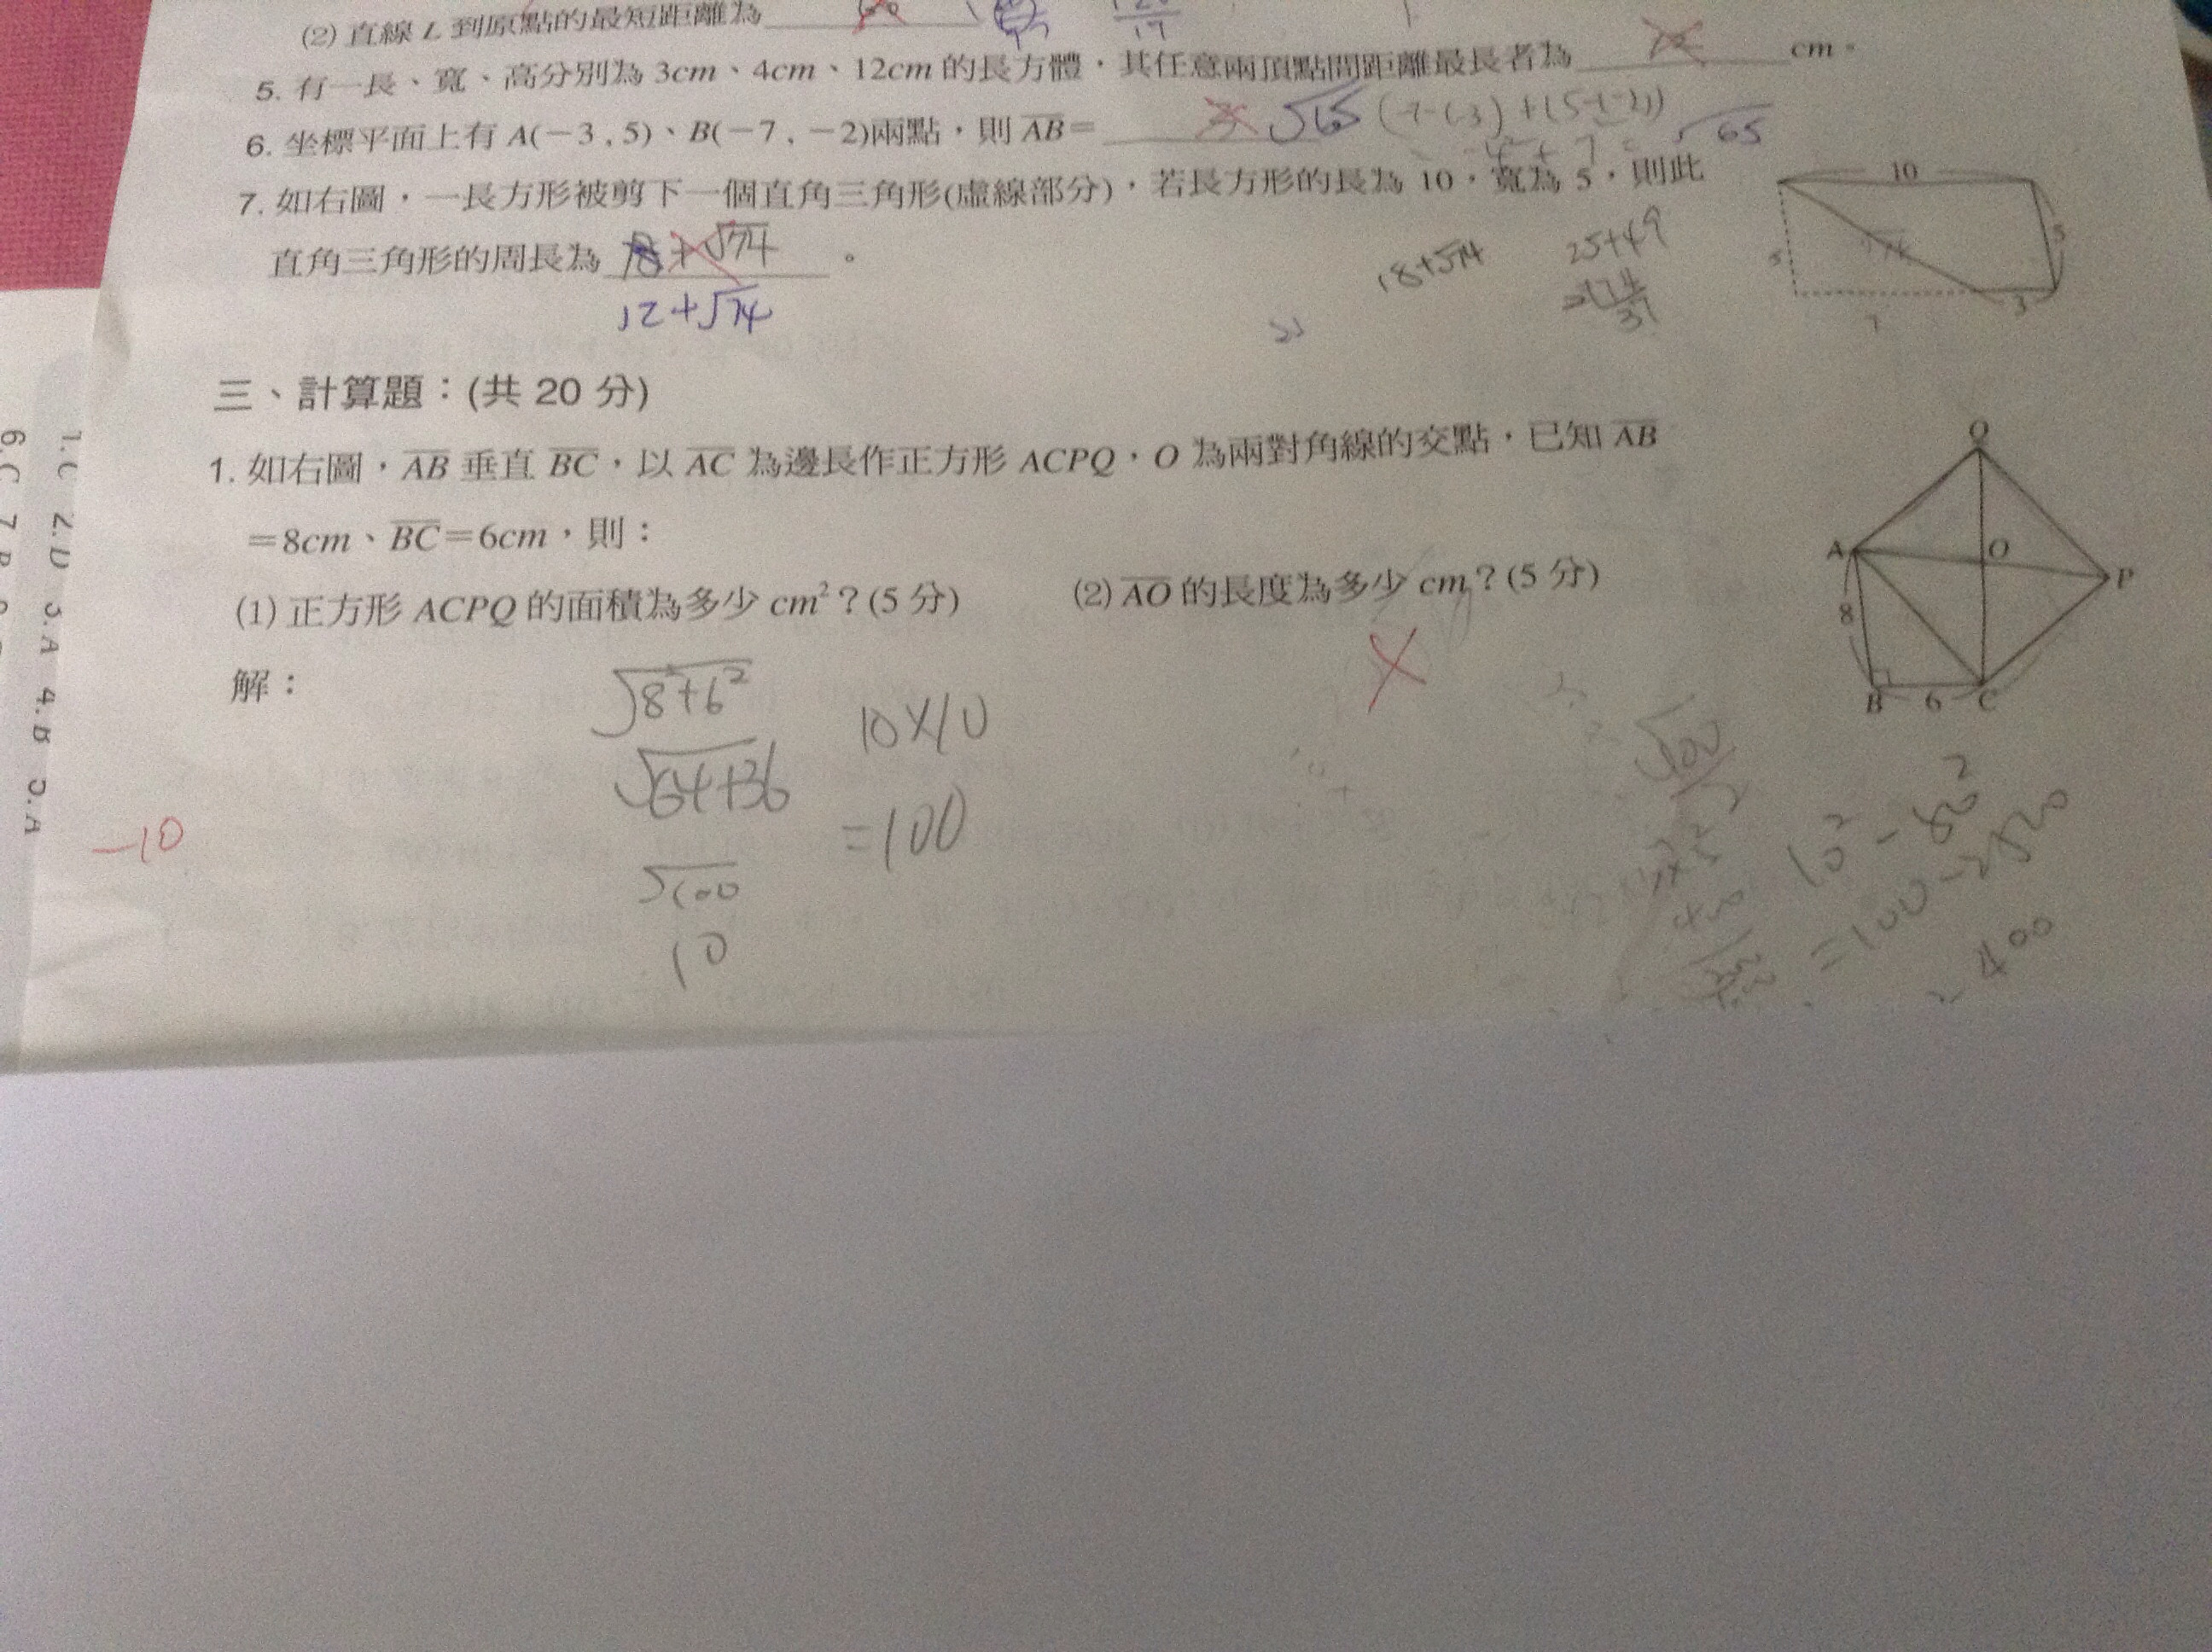 (2) 直線 L 到原點的最短距離為 60 17
5. 有一長、寬、高分別為 3cm、4cm、12cm 的長方體,其任意兩頂點間距離最長者為 cm。
6. 坐標平面上有 A(-3,5)、B(-7,-2)兩點,則 AB= √65 √65
7. 如右圖,一長方形被剪下一個直角三角形(虛線部分),若長方形的長為 10,寬為 5,則此
直角三角形的周長為 18+√74 。
12+√74
18+√74
25+49
10
5
5
√74
3
7
三、計算題:(共 20 分)
1. 如右圖,AB 垂直 BC,以 AC 為邊長作正方形 ACPQ,O 為兩對角線的交點,已知 AB
=8cm、BC=6cm,則:
(1) 正方形 ACPQ 的面積為多少 cm²?(5 分) (2) AO 的長度為多少 cm?(5 分)
Q
A O P
8
B 6 C
解:
√8²+6²
√64+36
√100
10
10×10
=100
√100
-10
1.C 2.D 3.A 4.B 5.A
6.C 7.B